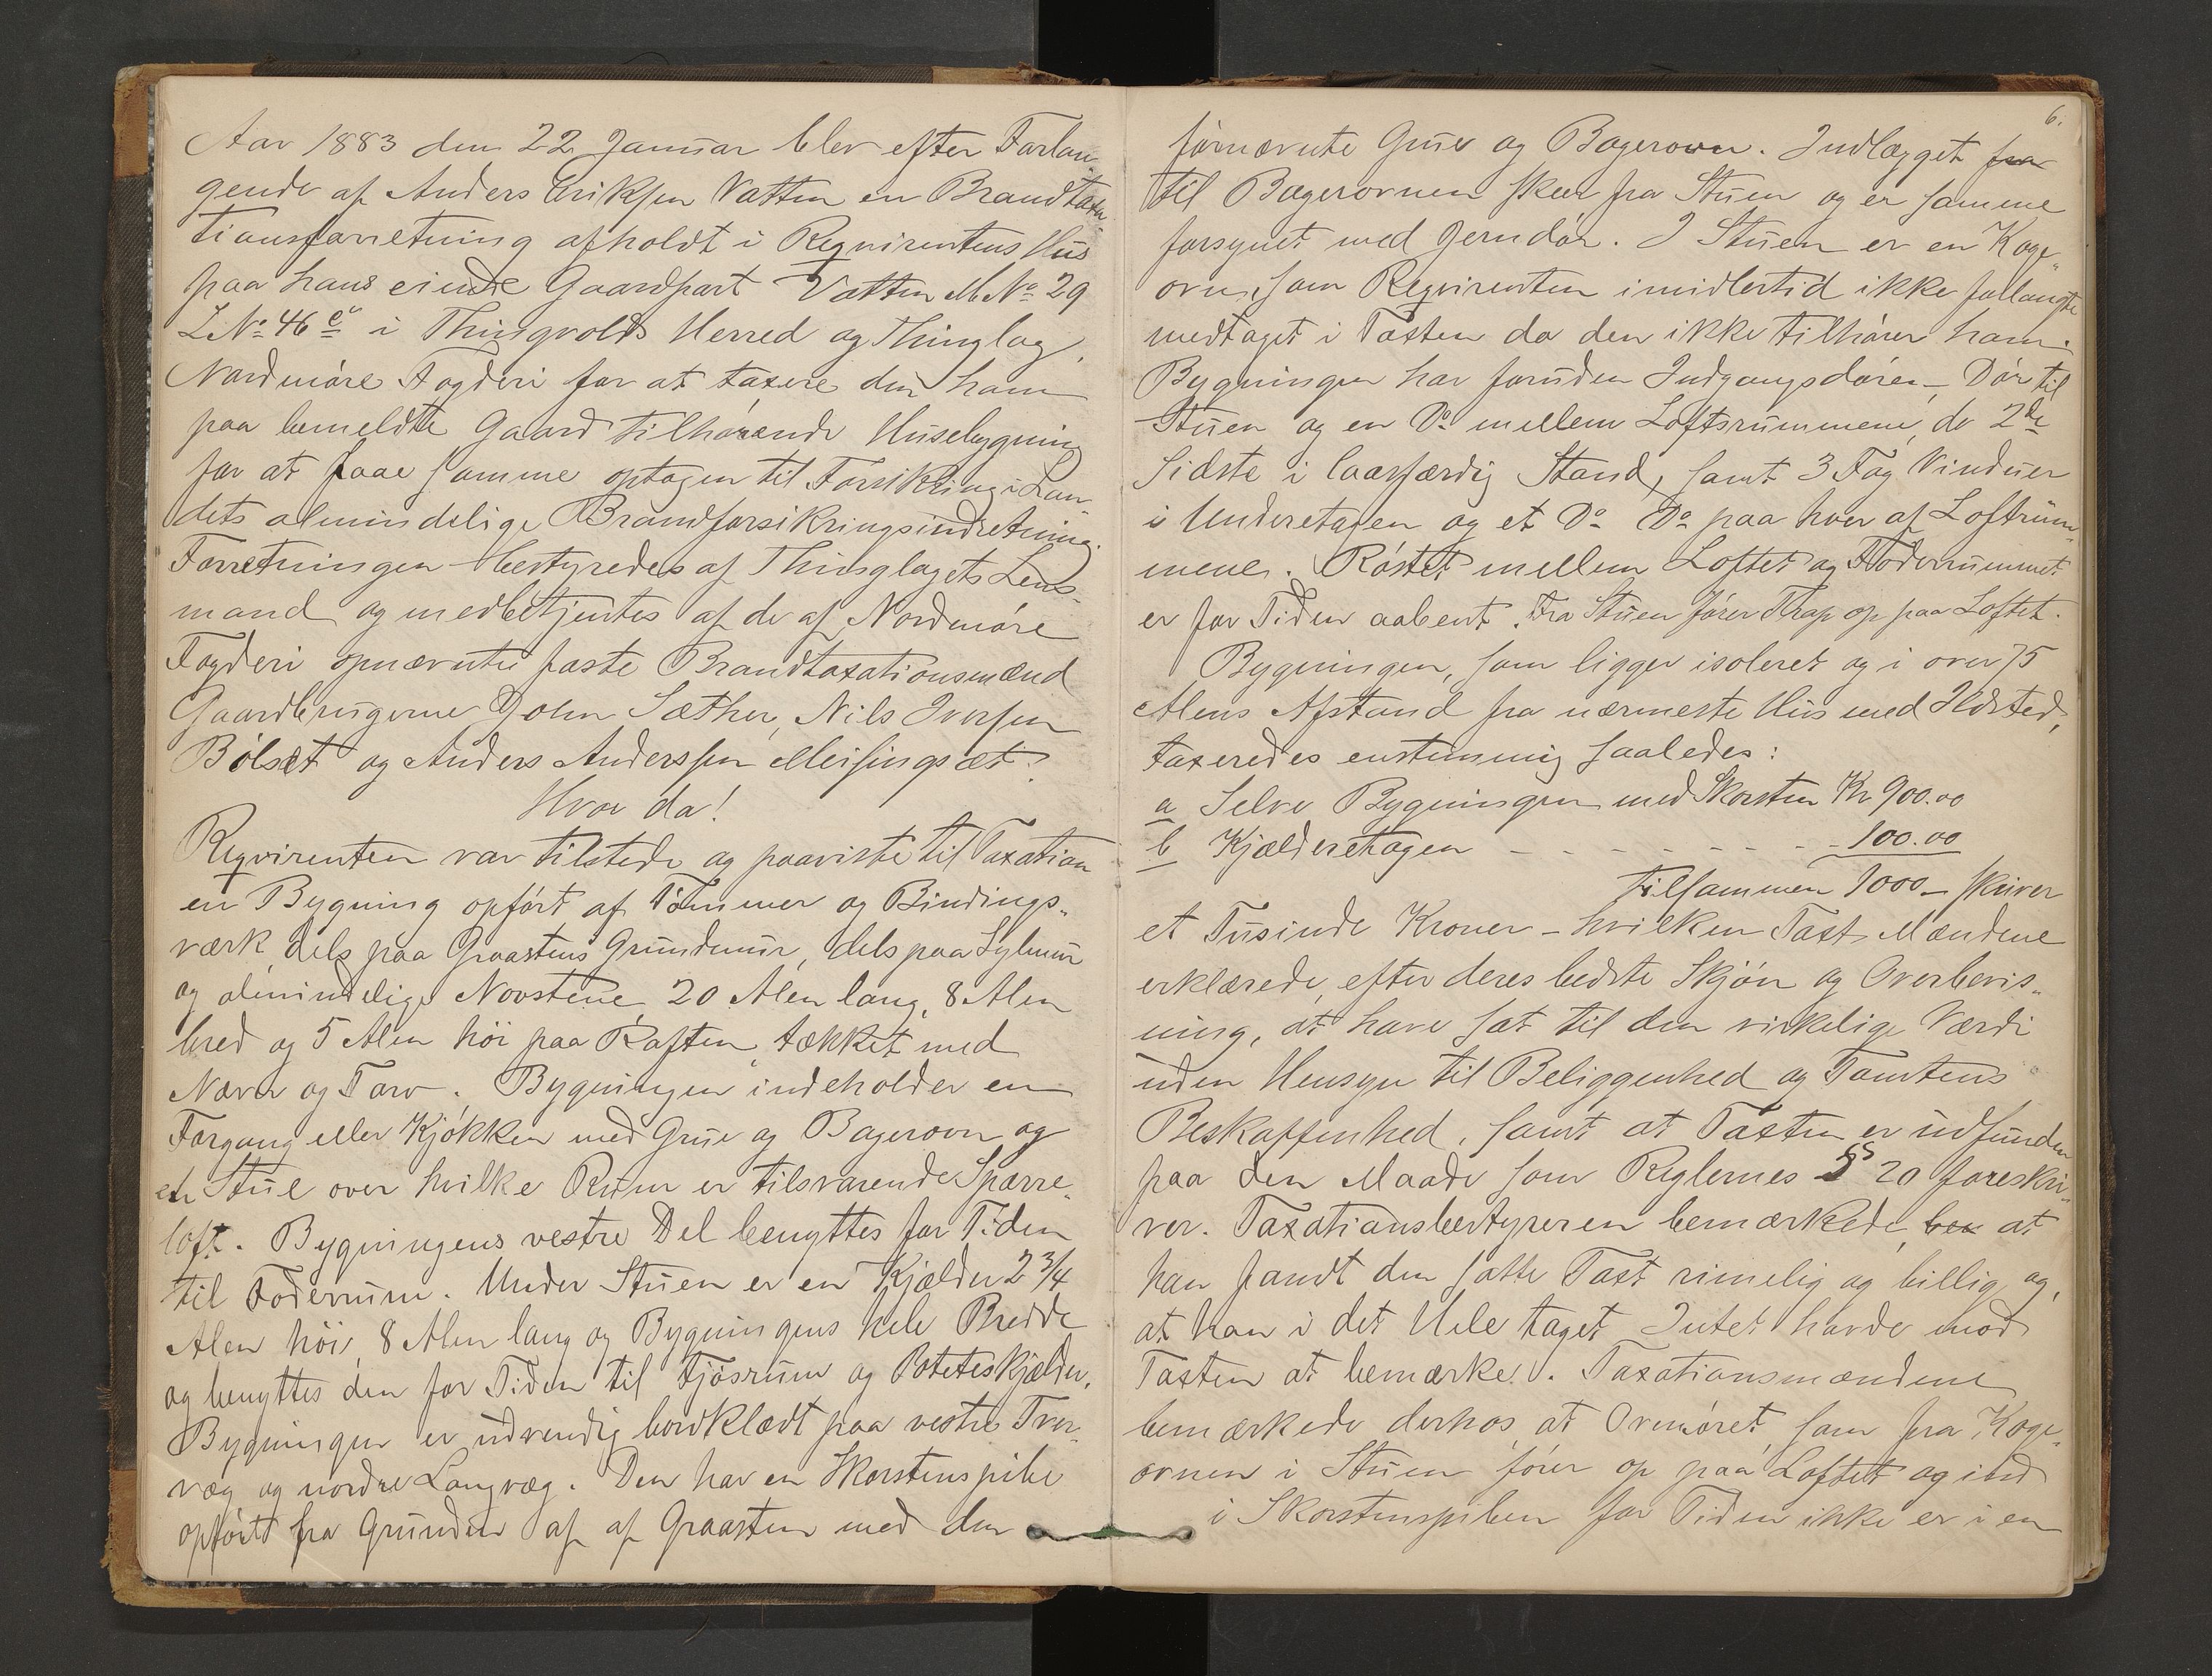 Aar 1883 den 22 Januar blev efter Forlan-
gende af Anders Eriksen Vatten en Brandtaxa-
tionsforretning afholdt i Reqvirentens Hus
paa hans eiende Gaardpart Vatten M.No 29
L.No 46 e i Thingvolds Herred og Thinglag,
Nordmøre Fogderi for at taxere den ham
paa bemeldte Gaard tilhørende Husebygning
for at faae samme optagen til Forsikring i Lan-
dets almindelige Brandforsikringsindretning.
Forretningen bestyredes af Thinglagets Lens-
mand og medbetjentes af de af Nordmøre
Fogderi opnævnte faste Brandtaxationsmænd
Gaardbrugerne John Sæther, Nils Iversen
Bølsæt og Anders Anderssen Meisingsæt.
Hvor da!
Reqvirenten var tilstede og paaviste til Taxation
en Bygning opført af Tømmer og Bindings-
værk, dels paa Graastens Grundmur, dels paa Sylmur
og almindelige Novstene, 20 Alen lang, 8 Alen
bred og 5 Alen høi paa Raften, tækket med
Næver og Tørv. Bygningen indeholder en
Forgang eller Kjøkken med Grue og Bagerovn og
en Stue over hvilke Rum er tilsvarende Sparre-
loft. Bygningens vestre Del benyttes for Tiden
til Foderrum. Under Stuen er en Kjælder 2 3/4
Alen høi, 8 Alen lang og Bygningens hele Bredde
og benyttes den for Tiden til Fjøsrum og Poteteskjælder.
Bygningen er udvendig bordklædt paa vestre Tver-
væg og nordre Langvæg. Den har en Skorstenspibe
opført fra Grunden af af Graasten med den
6.
førnævnte Grue og Bagerovn. Indlægget fra
til Bagerovnen skeer fra Stuen og er samme
forsynet med Jerndør. I Stuen er en Koge-
ovn, som Reqvirenten imidlertid ikke forlangte
medtaget i Taxten da den ikke tilhører ham.
Bygningen har foruden Indgangsdøren – Dør til
Stuen og en Do mellem Loftsrummene, de 2de
Sidste i laasfærdig Stand, samt 3 Fag Vinduer
i Underetagen og et Do Do paa hver af Loftrum-
mene. Røstet mellem Loftet og Foderrummet
er for Tiden aabent. Fra Stuen fører Trap op paa Loftet.
Bygningen, som ligger isoleret og i over 75
Alens Afstand fra nærmeste Hus med Ildsted,
taxeredes enstemmig saaledes:
a Selve Bygningen med Skorsten Kr 900.00
b Kjælderetagen - - - - - - - - 100.00
Tilsammen 1000 – skriver
et Tusinde Kroner – hvilken Taxt Mændene
erklærede, efter deres bedste Skjøn og Overbevis-
ning, at have sat til den virkelige Værdi
uden Hensyn til Beliggenhed og Tomtens
Beskaffenhed, samt at Taxten er udfunden
paa den Maade som Reglernes § 20 foreskri-
ver. Taxationsbestyreren bemærkede, at
han fandt den satte Taxt rimelig og billig og,
at han i det Hele taget Intet havde mod
Taxten at bemærke. Taxationsmændene
bemærkede derhos, at Ovnrøret, som fra Koge-
ovnen i Stuen fører op paa Loftet og ind
i Skorstenspiben for Tiden ikke er i en